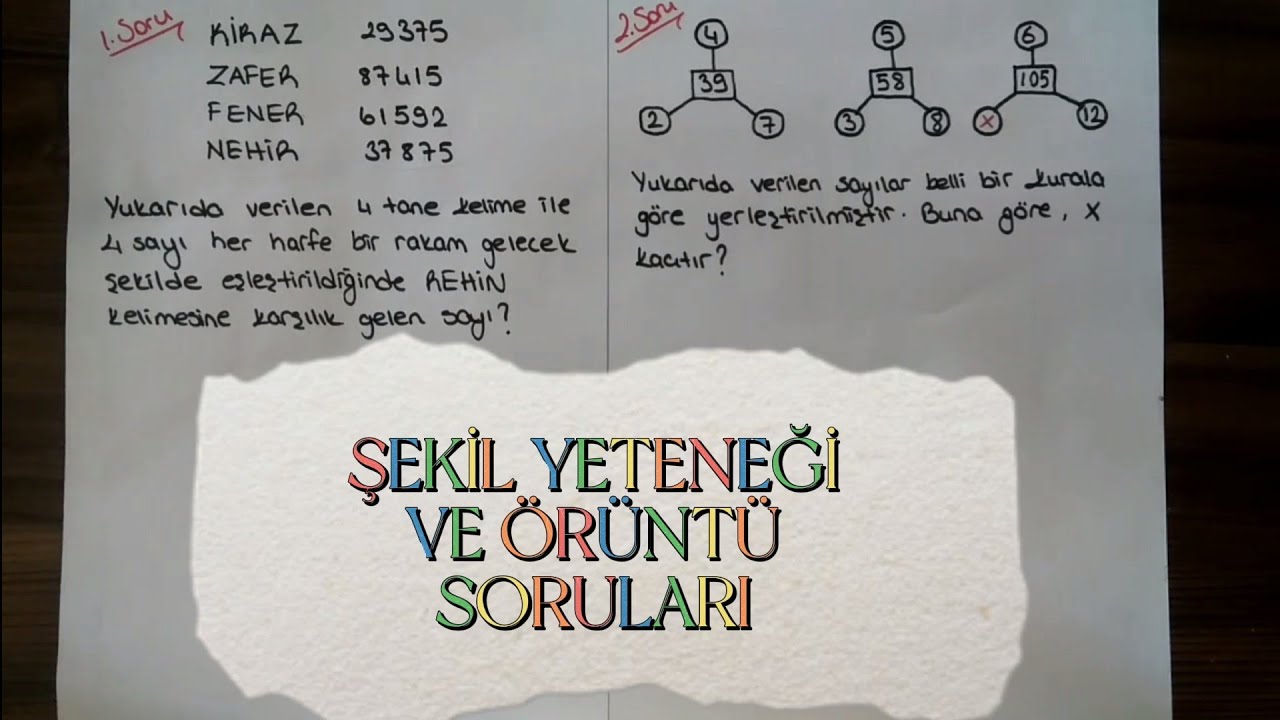 1. Soru
KİRAZ 29375
ZAFER 87415
FENER 61592
NEHİR 37875
Yukarıda verilen 4 tane kelime ile
4 sayı her harfe bir rakam gelecek
şekilde eşleştirildiğinde REHİN
kelimesine karşılık gelen sayı?
2. Soru
4 5 6
39 58 105
2 7 3 8 x 12
Yukarıda verilen sayılar belli bir kurala
göre yerleştirilmiştir. Buna göre, x
kaçtır?
ŞEKİL YETENEĞİ
VE ÖRÜNTÜ
SORULARI